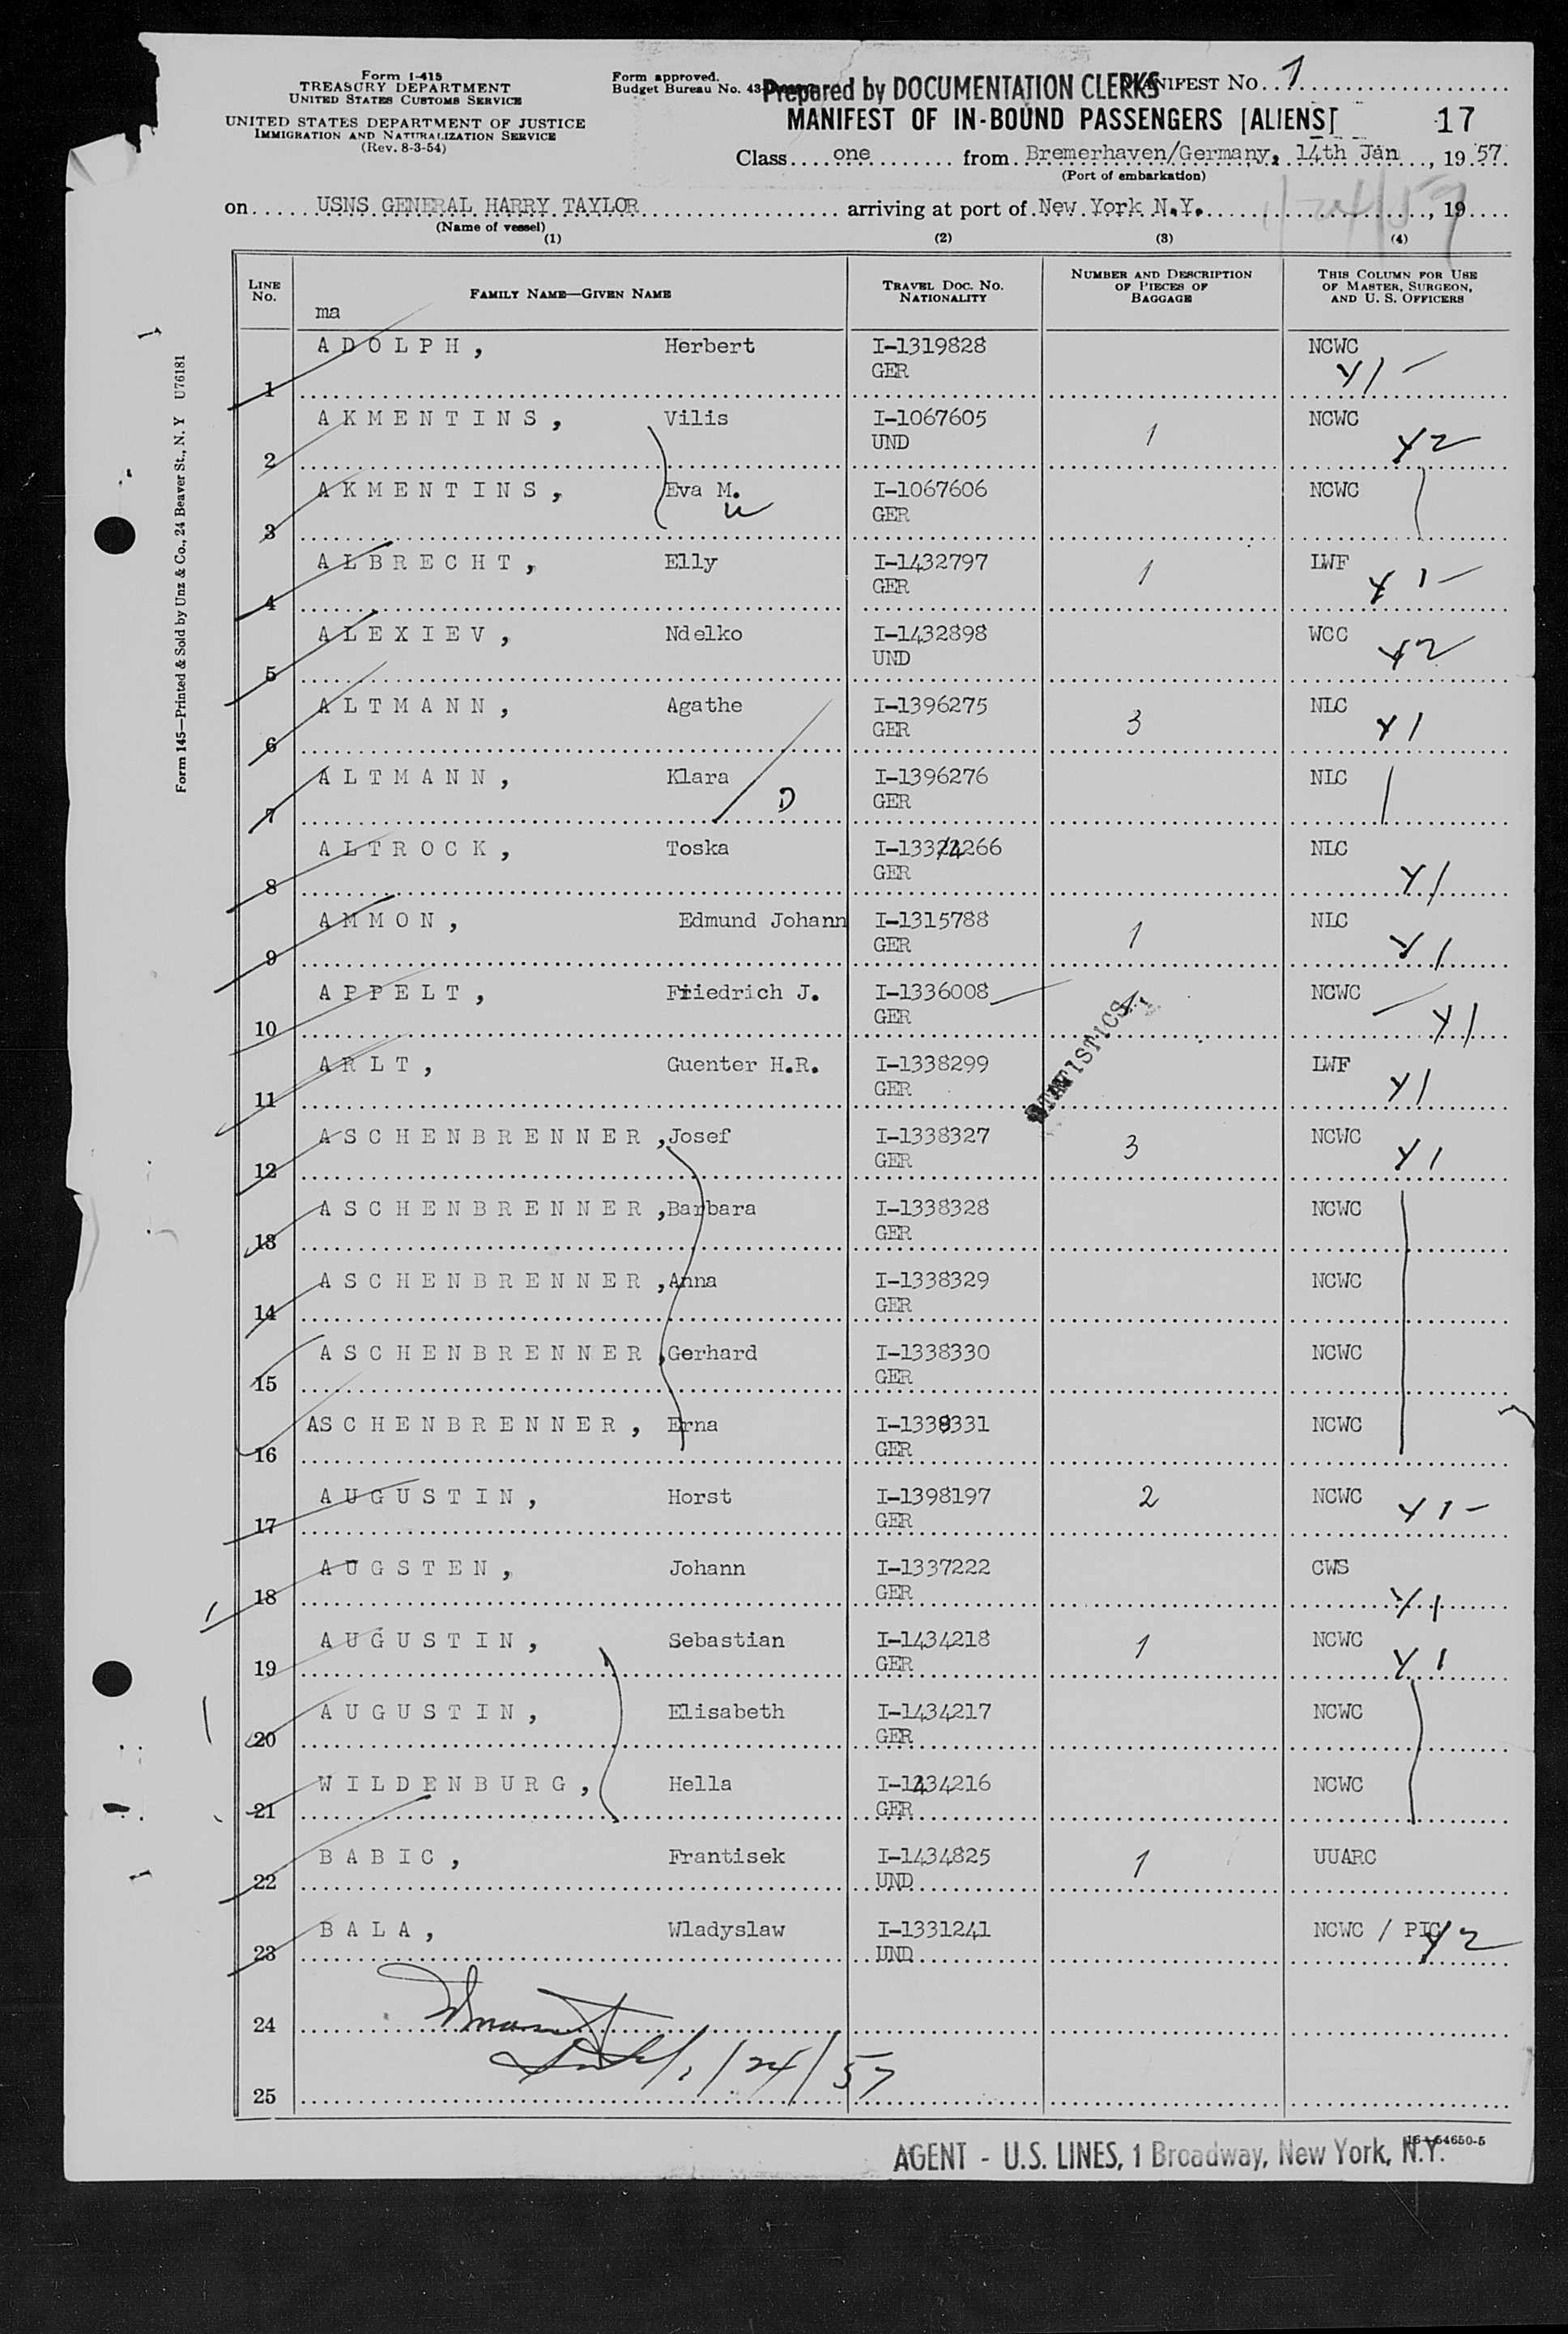 Form I-415
TREASURY DEPARTMENT
UNITED STATES CUSTOMS SERVICE
UNITED STATES DEPARTMENT OF JUSTICE
IMMIGRATION AND NATURALIZATION SERVICE
(Rev. 8-3-54)
Form approved.
Budget Bureau No. 43-
Prepared by DOCUMENTATION CLERKS
MANIFEST No. 1
MANIFEST OF IN-BOUND PASSENGERS [ALIENS] 17
Class one from Bremerhaven/Germany, 14th Jan, 1957
(Port of embarkation)
on USNS GENERAL HARRY TAYLOR arriving at port of New York N.Y., 19
(Name of vessel)
(1) (2) (3) (4)
LINE No. FAMILY NAME—GIVEN NAME TRAVEL DOC. No. NATIONALITY NUMBER AND DESCRIPTION OF PIECES OF BAGGAGE THIS COLUMN FOR USE OF MASTER, SURGEON, AND U. S. OFFICERS
ma
1 ADOLPH, Herbert I-1319828 GER NCWC Y1 -
2 AKMENTINS, Vilis I-1067605 UND 1 NCWC Y2
3 AKMENTINS, Eva M. W I-1067606 GER NCWC
4 ALBRECHT, Elly I-1432797 GER 1 LWF Y 1 -
5 ALEXIEV, Ndelko I-1432898 UND WCC Y2
6 ALTMANN, Agathe I-1396275 GER 3 NLC Y1
7 ALTMANN, Klara D I-1396276 GER NLC
8 ALTROCK, Toska GER NLC Y1
9 AMMON, Edmund Johann I-1315788 GER 1 NLC Y1
10 APPELT, Friedrich J. I-1336008 GER NCWC Y1
STATISTICS
11 ARLT, Guenter H.R. I-1338299 GER LWF Y1
12 ASCHENBRENNER, Josef I-1338327 GER 3 NCWC Y1
13 ASCHENBRENNER, Barbara I-1338328 GER NCWC
14 ASCHENBRENNER, Anna I-1338329 GER NCWC
15 ASCHENBRENNER, Gerhard I-1338330 GER NCWC
16 ASCHENBRENNER, Erna I-1338331 GER NCWC
17 AUGUSTIN, Horst I-1398197 GER 2 NCWC Y1 -
18 AUGSTEN, Johann I-1337222 GER CWS Y1
19 AUGUSTIN, Sebastian I-1434218 GER 1 NCWC Y1
20 AUGUSTIN, Elisabeth I-1434217 GER NCWC
21 WILDENBURG, Hella I-1434216 GER NCWC
22 BABIC, Frantisek I-1434825 UND 1 UUARC
23 BALA, Wladyslaw I-1331241 UND NCWC / PIC Y2
24
1/24/57
25
16-54650-5
AGENT - U.S. LINES, 1 Broadway, New York, N.Y.
Form 145—Printed & Sold by Unz & Co., 24 Beaver St., N. Y U76181